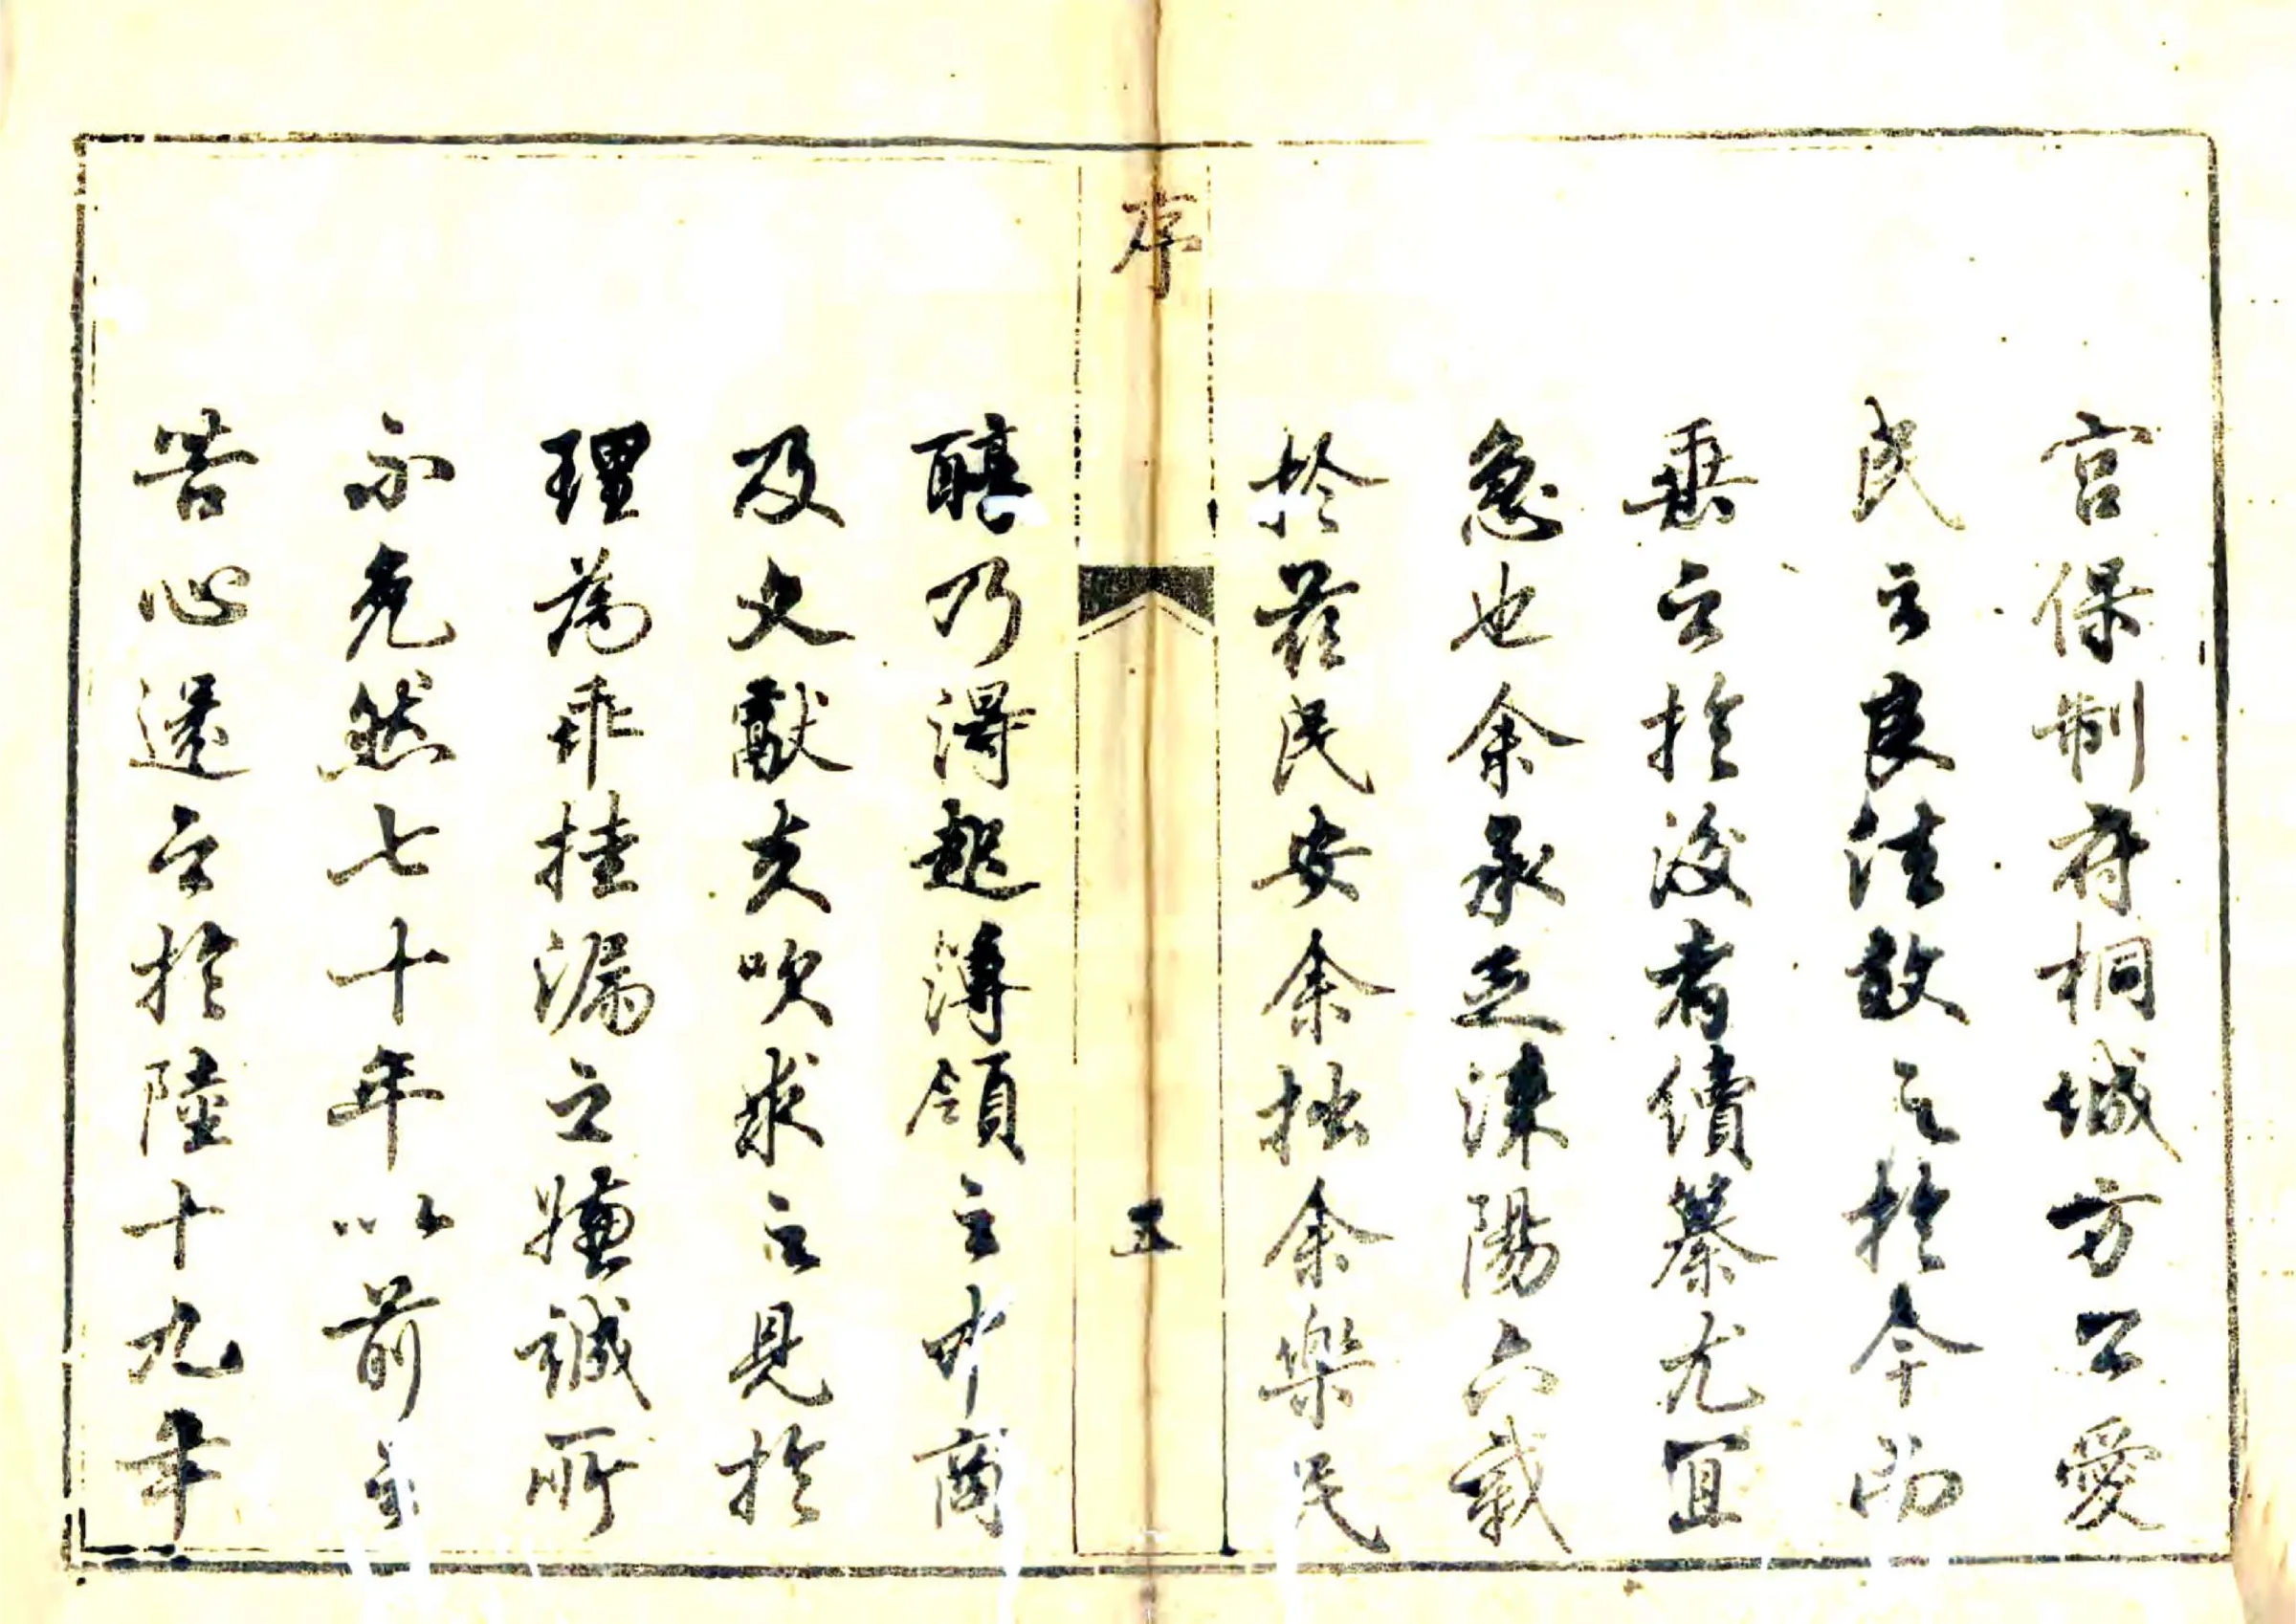 宮保制府桐城方公愛
民之良法效之於今而
垂之於後者續纂尤宜
急也余承乏溧陽六載
於茲民安余拙余樂民
序
五
醇乃得起簿領之中商
及文獻夫吹求之見於
理為乖挂漏之嫌誠所
不免然七十年以前之
苦心還之於陸十九年